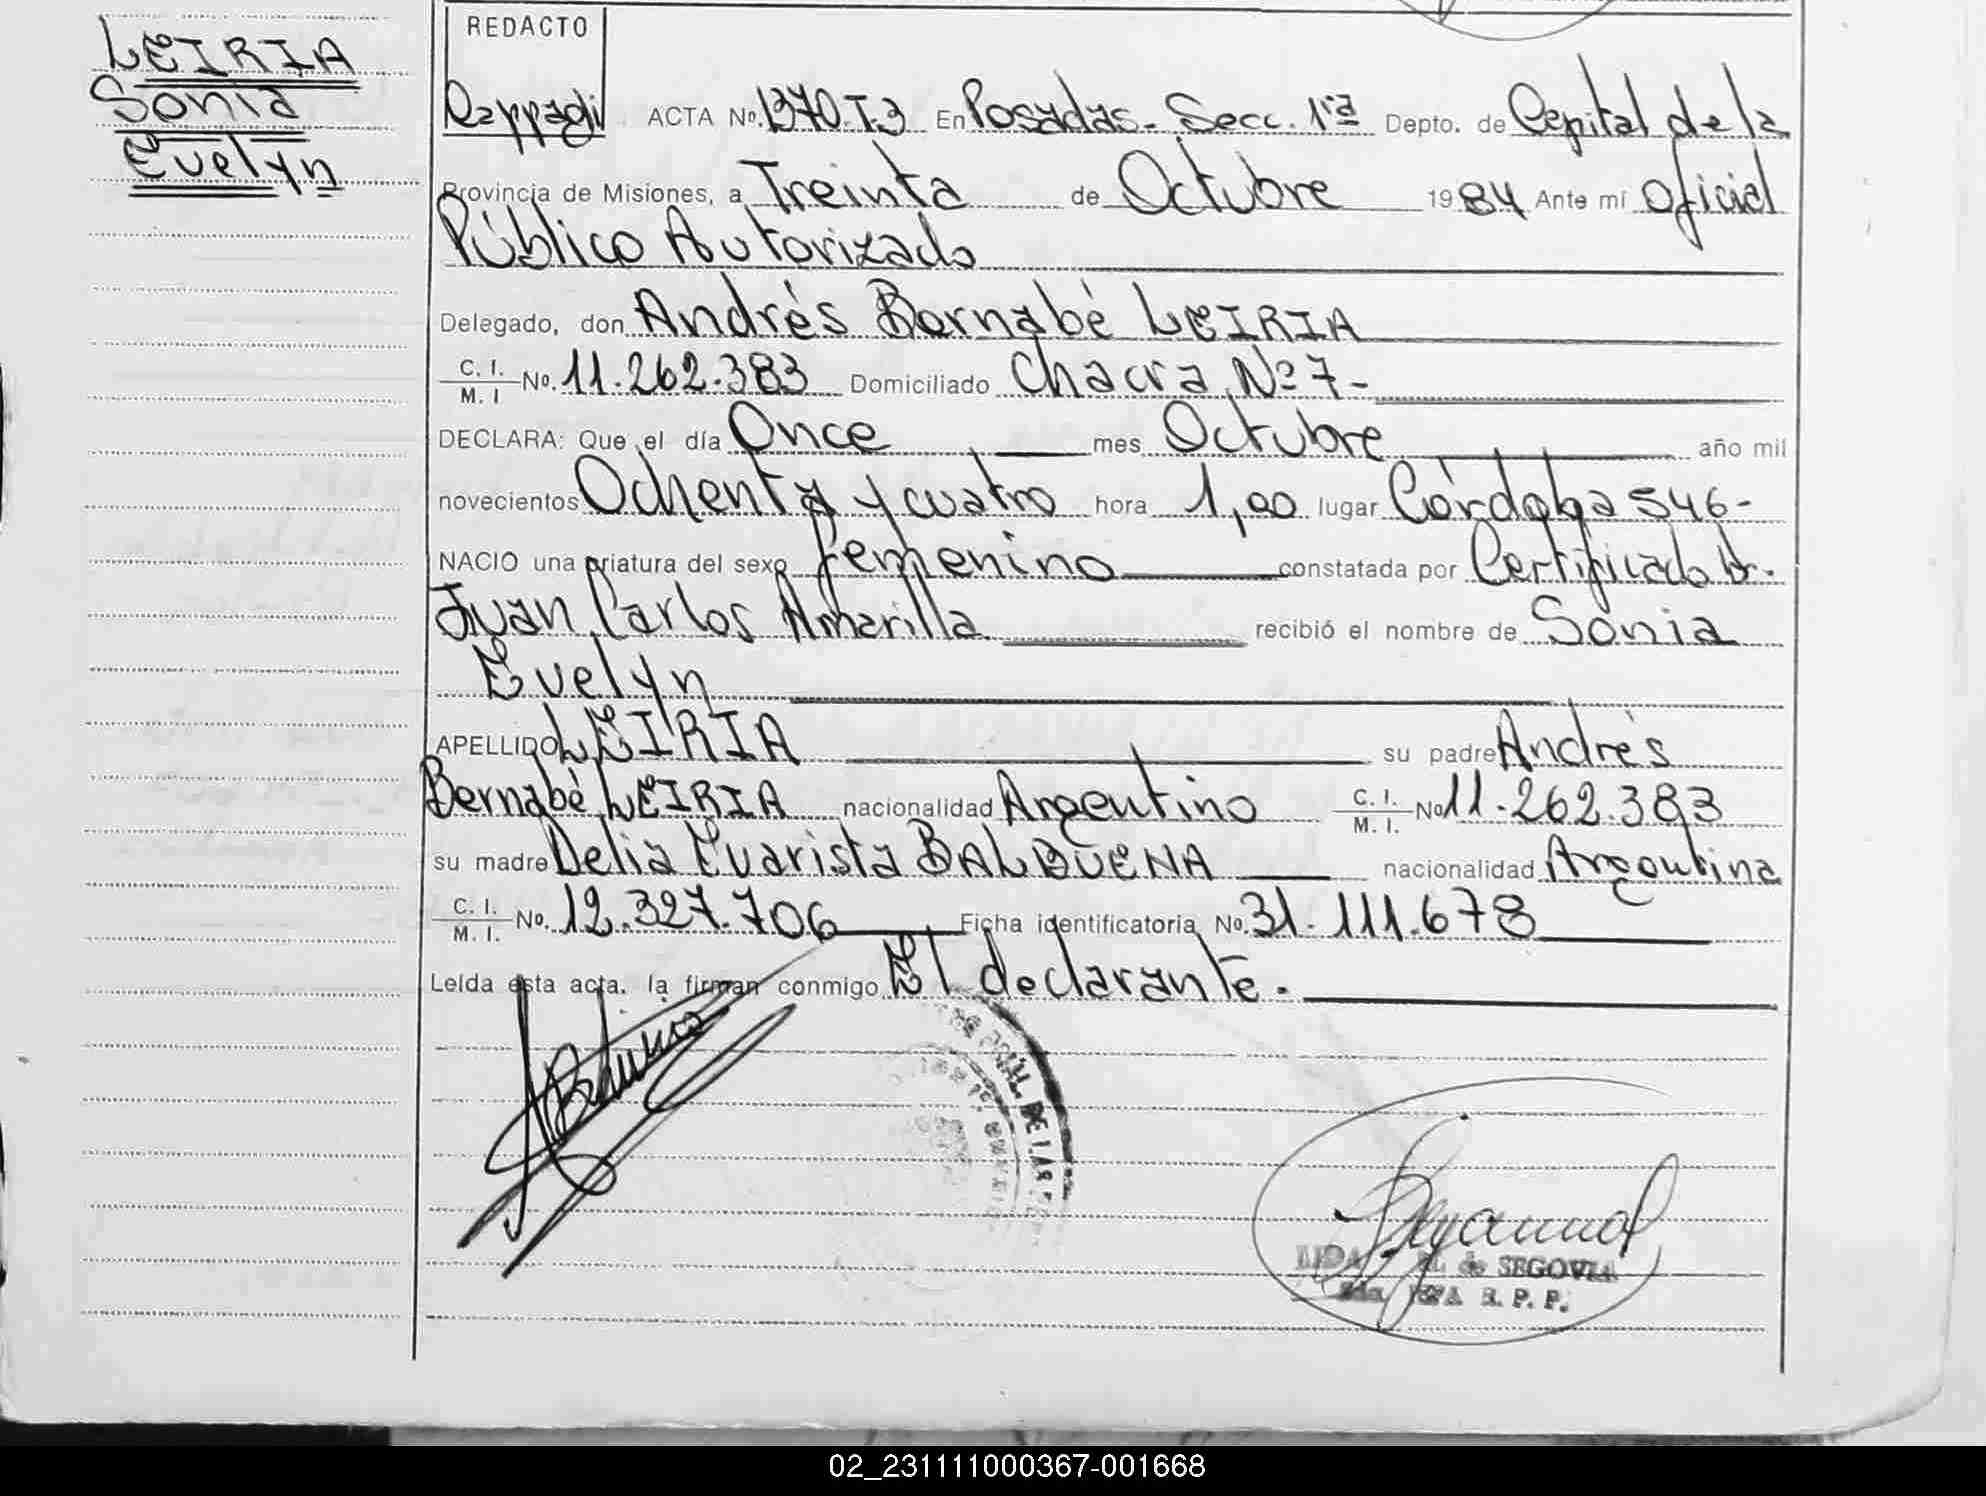 LEIRIA
Sonia
Evelyn
REDACTO
ACTA No. 1370 T.3 En Posadas - Secc. 1ra Depto. de Capital de la
Provincia de Misiones, a Treinta de Octubre 1984 Ante mí Oficial
Público Autorizado
Delegado, don Andrés Bernabé LEIRIA
C. I.
M. I No. 11.262.383 Domiciliado Chacra No 7-
DECLARA: Que el día Once mes Octubre año mil
novecientos Ochenta y cuatro hora 1,00 lugar Córdoba 546-
NACIO una criatura del sexo femenino constatada por Certificado Dr.
Juan Carlos Amarilla recibió el nombre de Sonia
Evelyn
APELLIDO LEIRIA su padre Andrés
Bernabé LEIRIA nacionalidad Argentino C. I.
M. I. No 11.262.383
su madre Delia Evarista BALBUENA nacionalidad Argentina
C. I.
M. I. No. 12.327.706 Ficha identificatoria No. 31.111.678
Leída esta acta, la firman conmigo El declarante.
de SEGOVIA
R. P. P.
02_231111000367-001668